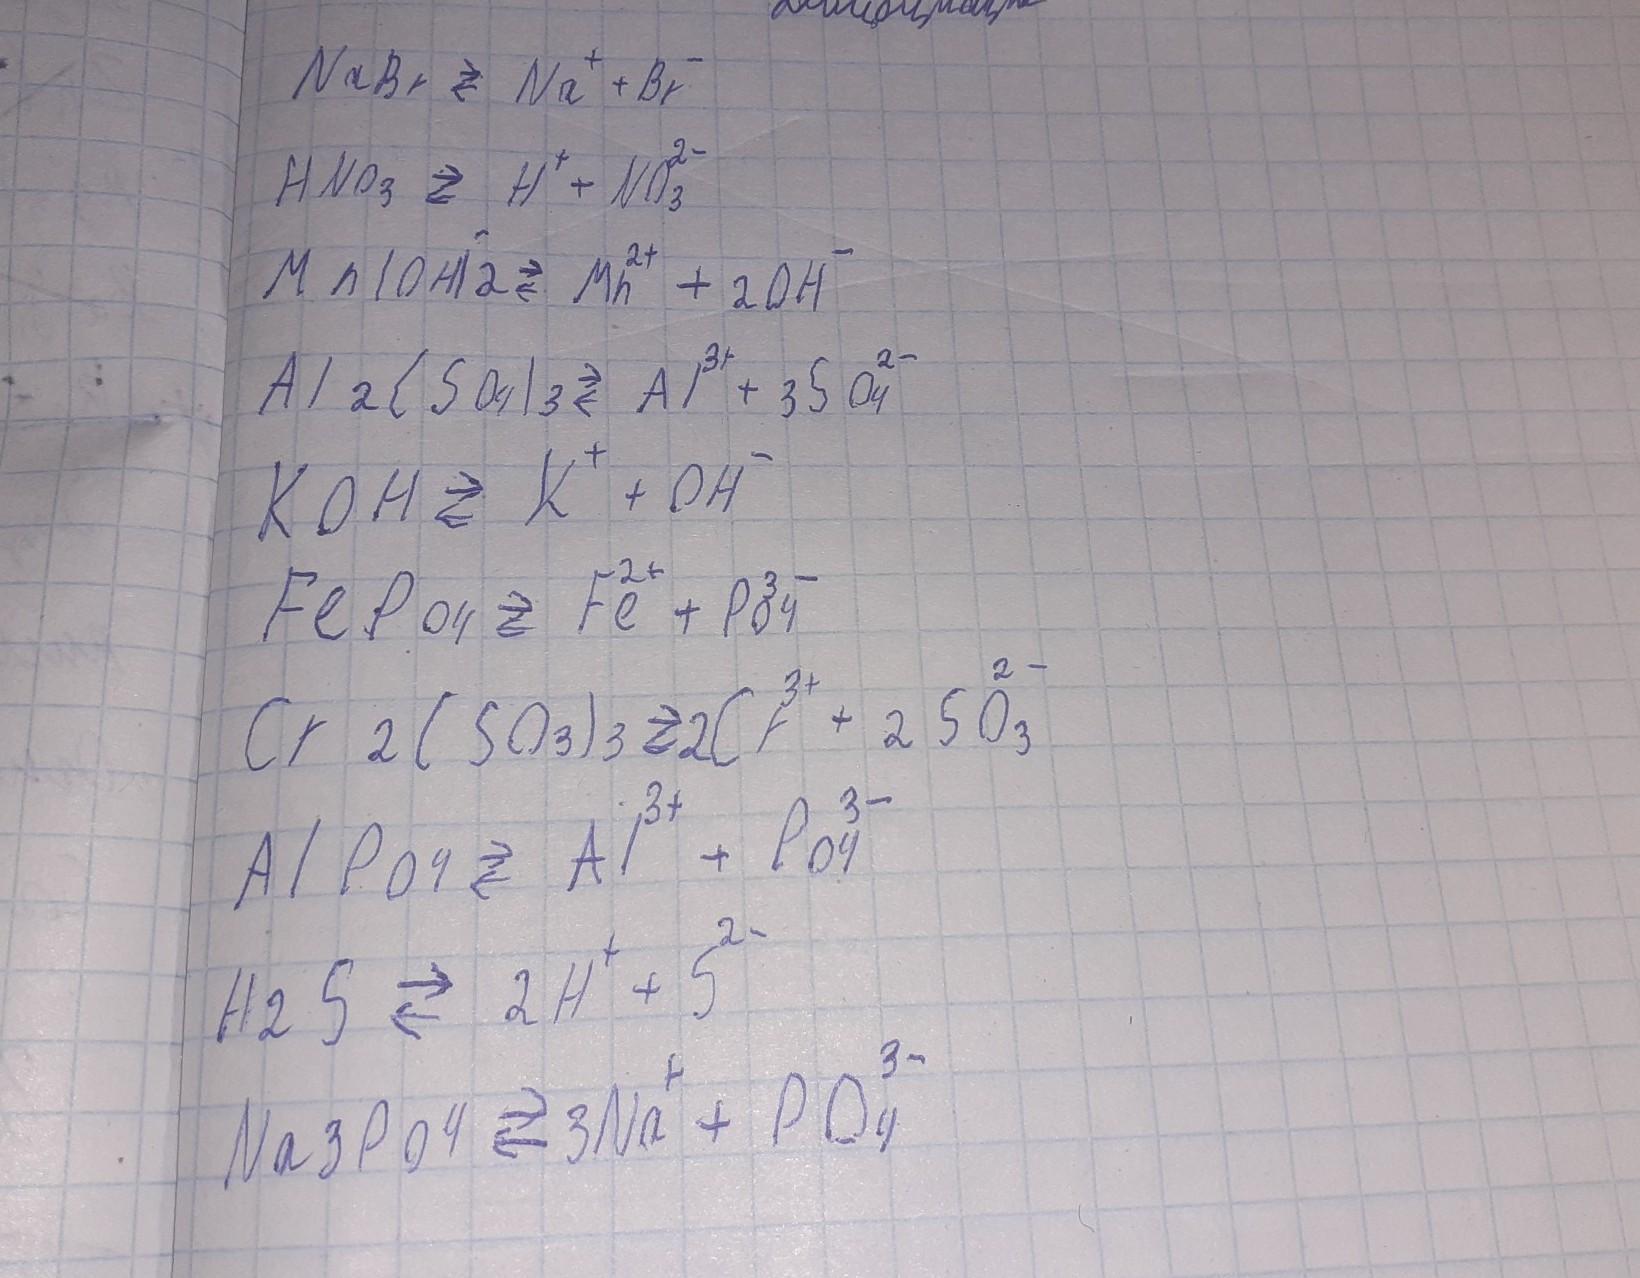 NaBr ⇄ Na⁺ + Br⁻
HNO₃ ⇄ H⁺ + NO₃²⁻
Mn(OH)2 ⇄ Mn²⁺ + 2OH⁻
Al2(SO₄)3 ⇄ Al³⁺ + 3SO₄²⁻
KOH ⇄ K⁺ + OH⁻
FePO₄ ⇄ Fe²⁺ + PO₄³⁻
Cr2(SO₃)3 ⇄ 2Cr³⁺ + 2SO₃²⁻
AlPO₄ ⇄ Al³⁺ + PO₄³⁻
H₂S ⇄ 2H⁺ + S²⁻
Na₃PO₄ ⇄ 3Na⁺ + PO₄³⁻